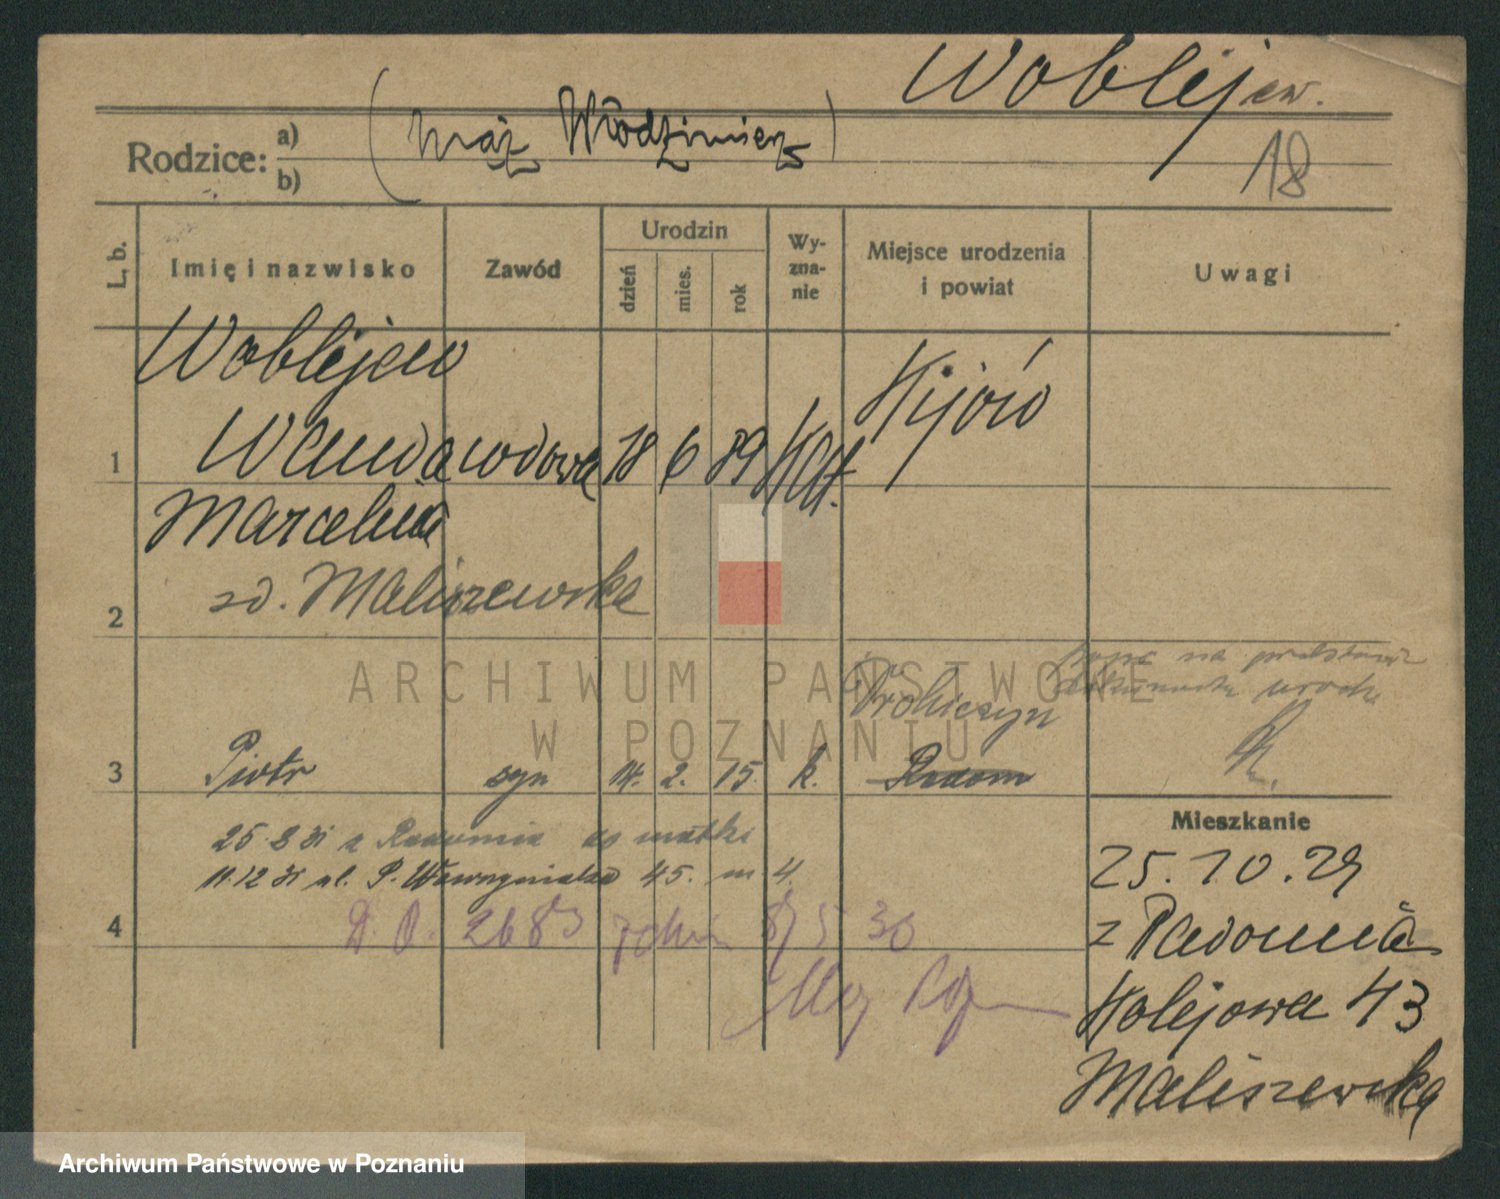 Woblejew.
18
Rodzice: a) b)
(mąż Włodzimierz)
L. b.
Imię i nazwisko
Zawód
Urodzin
dzień
mies.
rok
Wy-
zna-
nie
Miejsce urodzenia
i powiat
Uwagi
Woblejew
1 Wanda wdowa 18 6 89 Kat. Kijów
Marcelina
2 zd. Maliszewska
na
3 Piotr syn 14. 2. 15 k. Radom
Mieszkanie
25.10.29
z Radomia
Kolejowa 43
Maliszewska
25.8 31 z Radomia do matki
11.12 31 ul. P. Wawrzyniaka 45. m 4.
4
D. O. 2683 5 30
ARCHIWUM PAŃSTWOWE
W POZNANIU
Archiwum Państwowe w Poznaniu